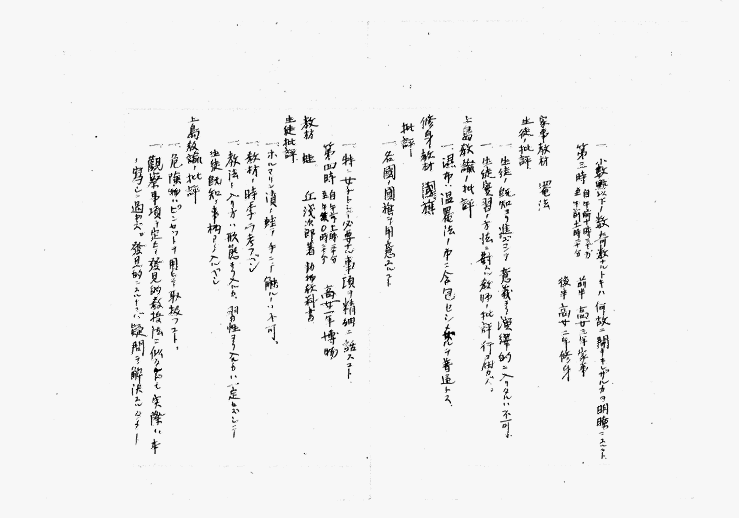 一、小数点以下ノ数ガ何数アルトキハ何故ニ開キキレザルカヲ明瞭ニスルコト
第三時 自午前十時三十分 至午前十一時二十分 前半 高女三年家事
後半 高女二年修身
家事教材 罨法
生徒ノ批評
一、生徒ノ既知ヨリ進マズシテ意義ヨリ演繹的ニ入リタルハ不可。
一、生徒実習ノ方法ニ対スル教師ノ批評行ヲ届カズ。
上島教諭ノ批評
一、湿布、温罨法ノ中ニ含包セシムルヲ普通トス。
修身教材 國旗
批評
一、各國ノ國旗ヲ用意スルコト
一、特ニ女子トシテ必要ナル事項ヲ精細ニ話スコト、
第四時 高女一年博物
教材 蛙 丘浅次郎著 動物教科書
生徒批評
一、ホルマリン漬ノ蛙ヲ手ニテ触ルハ不可。
一、教材ノ時季ヲ考フベシ
一、教法ノ入リ方ハ形態ヨリ入ルカ、習性ヨリ入ルカハ一定セズシテ
生徒既知ノ事柄ヨリ入ルベシ
上島教諭ノ批評
一、危険物ハピンセットヲ用ヒテ取扱フコト。
一、観察事項ヲ定メ発見的教授法ニ似タルモ実際ハ本
ノ写シニ過ギズ。発見的ニスルナラバ疑問ヲ解決スル